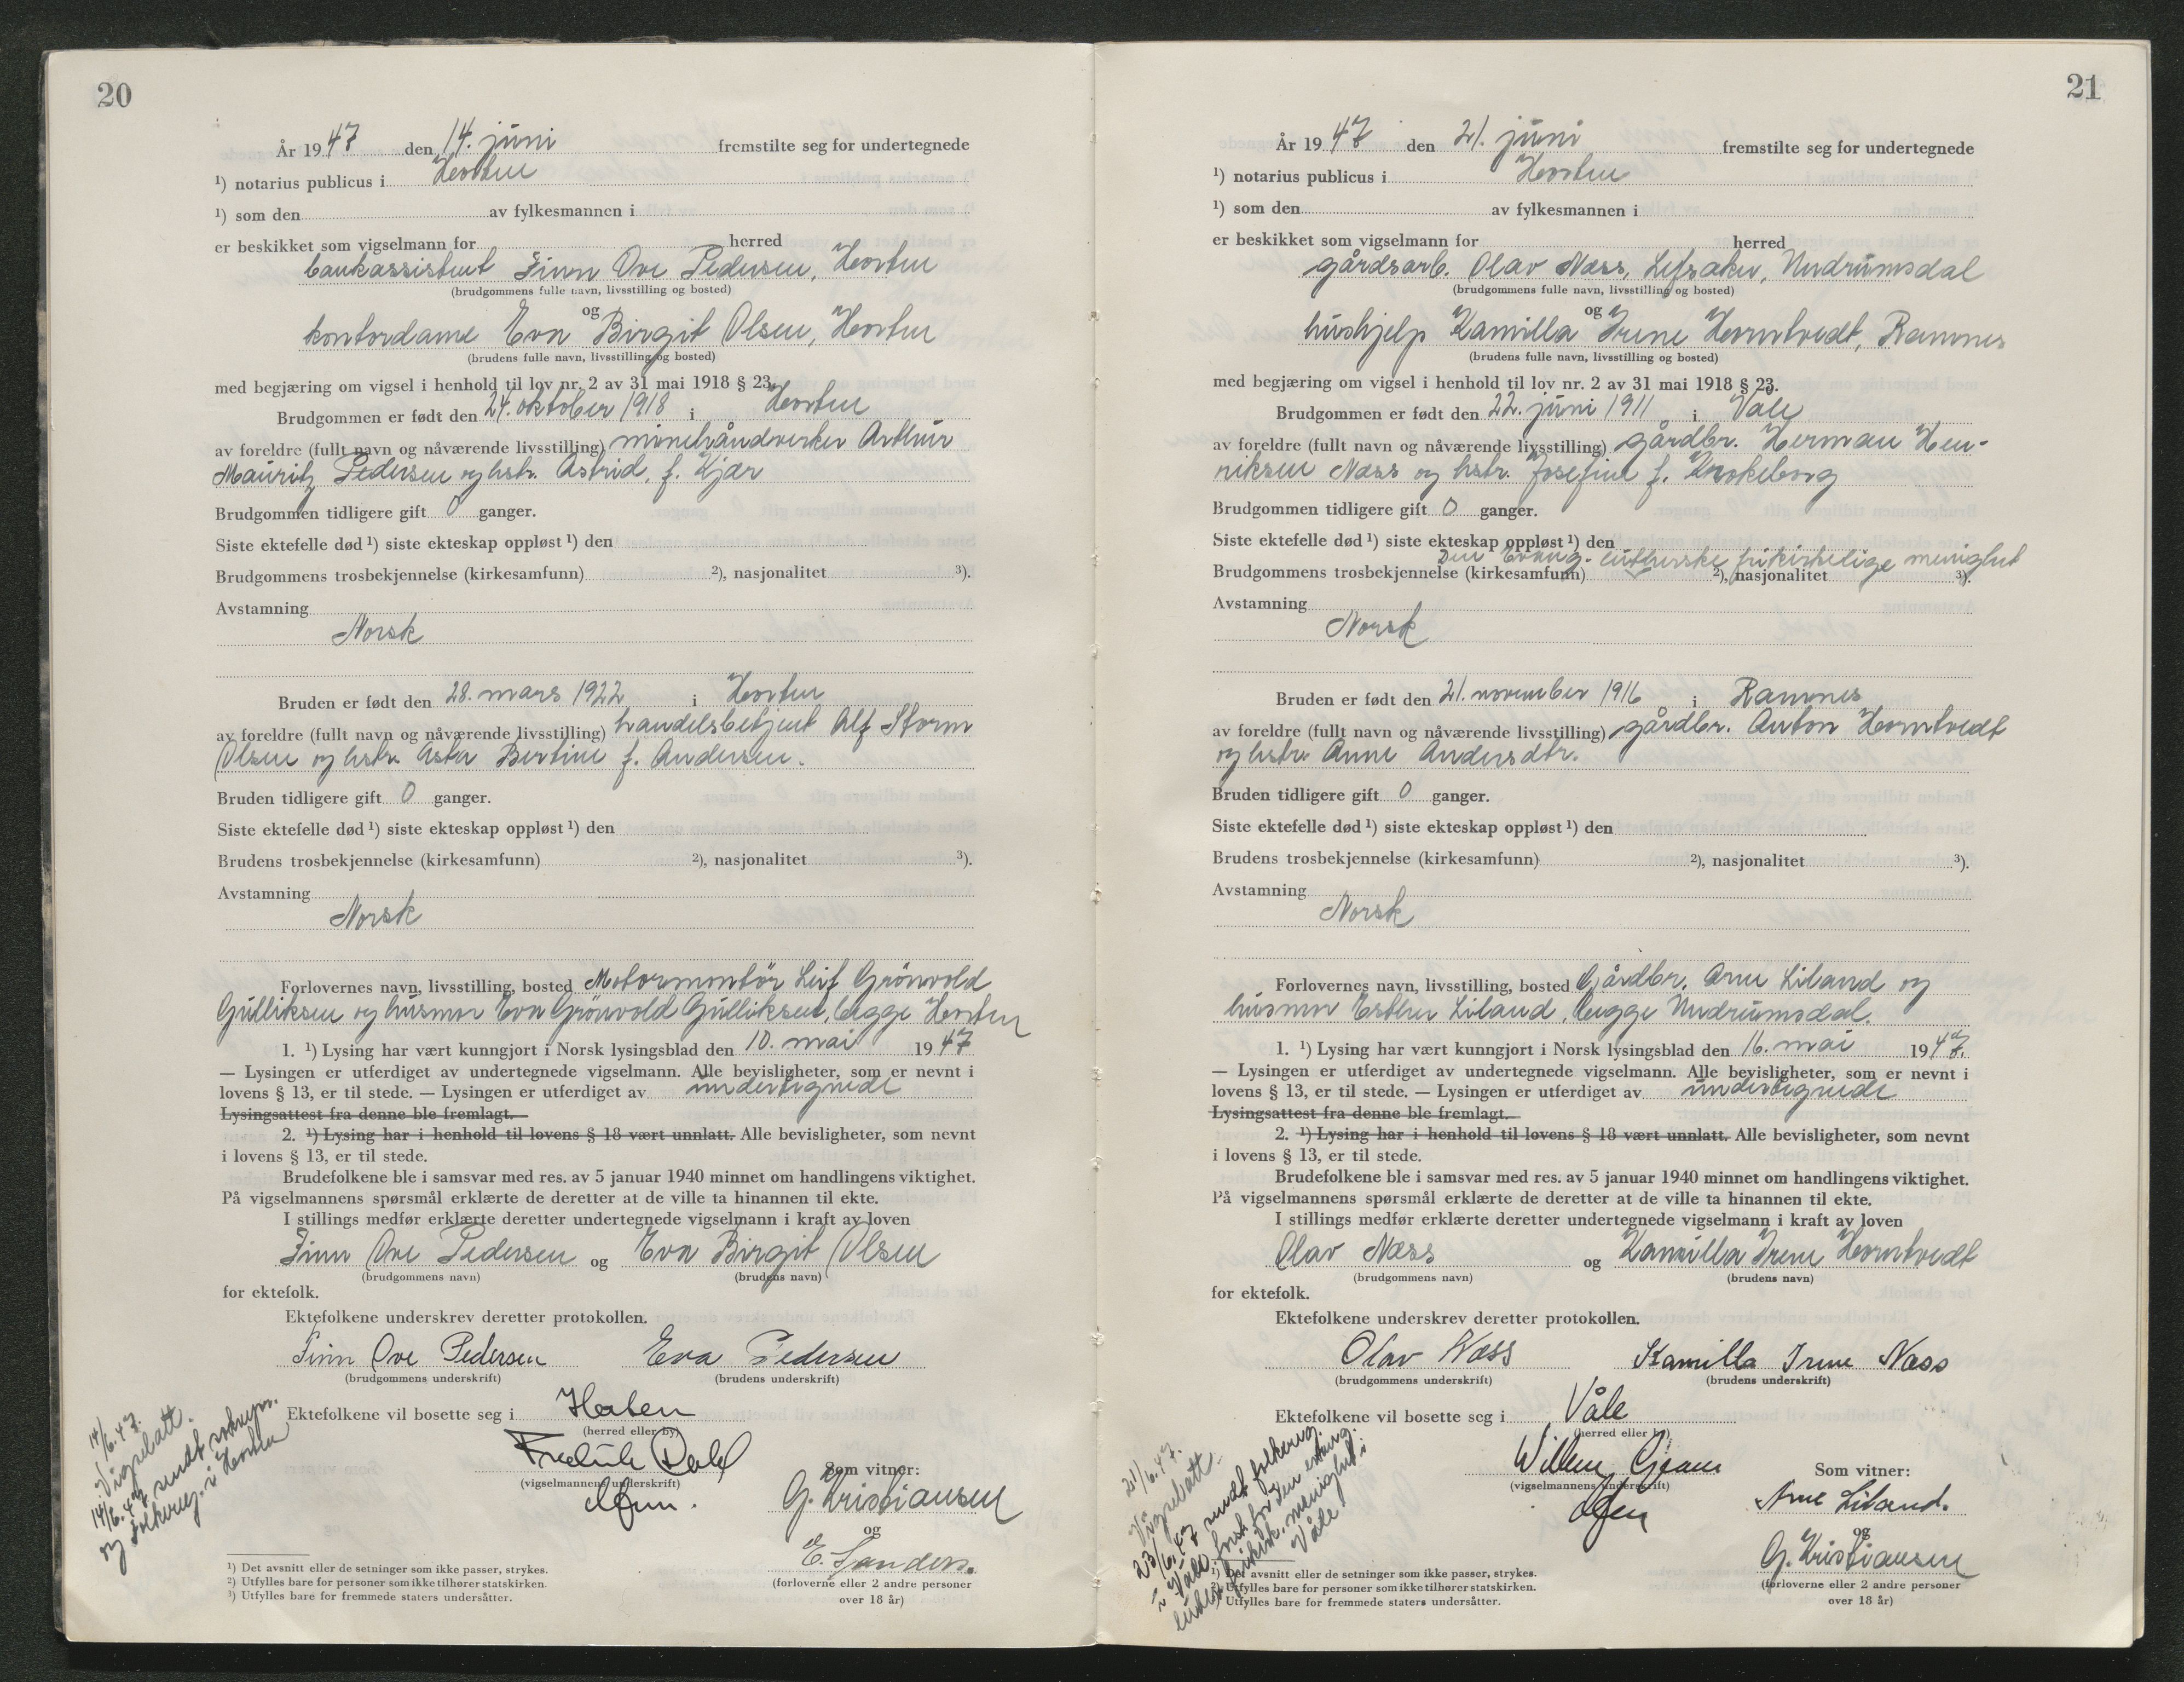 20
År 1947 den 14. juni fremstilte seg for undertegnede
¹) notarius publicus i Horten
¹) som den av fylkesmannen i
er beskikket som vigselmann for herred
bankassistent Finn Ove Pedersen, Horten
(brudgommens fulle navn, livsstilling og bosted)
og
kontordame Eva Birgit Olsen, Horten
(brudens fulle navn, livsstilling og bosted)
med begjæring om vigsel i henhold til lov nr. 2 av 31 mai 1918 § 23.
Brudgommen er født den 24. oktober 1918 i Horten
av foreldre (fullt navn og nåværende livsstilling) minehåndverker Arthur
Mauritz Pedersen og hstr. Astrid, f. Kjær
Brudgommen tidligere gift 0 ganger.
Siste ektefelle død ¹) siste ekteskap oppløst ¹) den
Brudgommens trosbekjennelse (kirkesamfunn) ²), nasjonalitet ³).
Avstamning
Norsk
Bruden er født den 28. mars 1922 i Horten
av foreldre (fullt navn og nåværende livsstilling) handelsbetjent Alf Storm
Olsen og hstr. Asta Bertine f. Andersen.
Bruden tidligere gift 0 ganger.
Siste ektefelle død ¹) siste ekteskap oppløst ¹) den
Brudens trosbekjennelse (kirkesamfunn) ²), nasjonalitet ³).
Avstamning
Norsk
Forlovernes navn, livsstilling, bosted Motormontör Leif Grönvold
Gulliksen og husmor Eva Grönvold Gulliksen, begge Horten
1. ¹) Lysing har vært kunngjort i Norsk lysingsblad den 10. mai 1947
— Lysingen er utferdiget av undertegnede vigselmann. Alle bevisligheter, som er nevnt i
lovens § 13, er til stede. — Lysingen er utferdiget av undertegnede
Lysingsattest fra denne ble fremlagt.
2. ¹) Lysing har i henhold til lovens § 18 vært unnlatt. Alle bevisligheter, som nevnt
i lovens § 13, er til stede.
Brudefolkene ble i samsvar med res. av 5 januar 1940 minnet om handlingens viktighet.
På vigselmannens spørsmål erklærte de deretter at de ville ta hinannen til ekte.
I stillings medfør erklærte deretter undertegnede vigselmann i kraft av loven
Finn Ove Pedersen og Eva Birgit Olsen
(brudgommens navn) (brudens navn)
for ektefolk.
Ektefolkene underskrev deretter protokollen.
Finn Ove Pedersen Eva Pedersen
(brudgommens underskrift) (brudens underskrift)
Ektefolkene vil bosette seg i Horten
(herred eller by)
Fredrik Dahl
(vigselmannens underskrift)
Som vitner:
G. Kristiansen
og
E. Sanders.
(forloverne eller 2 andre personer
over 18 år)
14/6.47.
Vigselatt.
14/6.47 sendt soknepr.
og folkereg. i Horten
¹) Det avsnitt eller de setninger som ikke passer, strykes.
²) Utfylles bare for personer som ikke tilhører statskirken.
³) Utfylles bare for fremmede staters undersåtter.
21
År 1947 den 21. juni fremstilte seg for undertegnede
¹) notarius publicus i Horten
¹) som den av fylkesmannen i
er beskikket som vigselmann for herred
gårdsarb. Olav Næss, Lefsaker, Undrumsdal
(brudgommens fulle navn, livsstilling og bosted)
og
hushjelp Kamilla Irene Horntvedt, Ramnes
(brudens fulle navn, livsstilling og bosted)
med begjæring om vigsel i henhold til lov nr. 2 av 31 mai 1918 § 23.
Brudgommen er født den 22. juni 1911 i Våle
av foreldre (fullt navn og nåværende livsstilling) gårdbr. Herman Hen-
riksen Næss og hstr. Josefine f. Krokeborg
Brudgommen tidligere gift 0 ganger.
Siste ektefelle død ¹) siste ekteskap oppløst ¹) den
Den Evang.-lutherske frikirkelige menighet
Brudgommens trosbekjennelse (kirkesamfunn) ²), nasjonalitet ³).
Avstamning
Norsk
Bruden er født den 21. november 1916 i Ramnes
av foreldre (fullt navn og nåværende livsstilling) gårdbr. Anton Horntvedt
og hstr. Anne Andersdtr.
Bruden tidligere gift 0 ganger.
Siste ektefelle død ¹) siste ekteskap oppløst ¹) den
Brudens trosbekjennelse (kirkesamfunn) ²), nasjonalitet ³).
Avstamning
Norsk
Forlovernes navn, livsstilling, bosted Gårdbr. Arne Liland og
husmor Esther Liland, begge Undrumsdal.
1. ¹) Lysing har vært kunngjort i Norsk lysingsblad den 16. mai 1947.
— Lysingen er utferdiget av undertegnede vigselmann. Alle bevisligheter, som er nevnt i
lovens § 13, er til stede. — Lysingen er utferdiget av undertegnede
Lysingsattest fra denne ble fremlagt.
2. ¹) Lysing har i henhold til lovens § 18 vært unnlatt. Alle bevisligheter, som nevnt
i lovens § 13, er til stede.
Brudefolkene ble i samsvar med res. av 5 januar 1940 minnet om handlingens viktighet.
På vigselmannens spørsmål erklærte de deretter at de ville ta hinannen til ekte.
I stillings medfør erklærte deretter undertegnede vigselmann i kraft av loven
Olav Næss og Kamilla Irene Horntvedt
(brudgommens navn) (brudens navn)
for ektefolk.
Ektefolkene underskrev deretter protokollen.
Olav Næss Kamilla Irene Næss
(brudgommens underskrift) (brudens underskrift)
Ektefolkene vil bosette seg i Våle
(herred eller by)
Willem Gram
(vigselmannens underskrift)
Som vitner:
Arne Liland.
og
G. Kristiansen
(forloverne eller 2 andre personer
over 18 år)
21/6.47.
Vigselatt.
23/6.47 sendt folkereg.
i Våle, forst. for Den evang.
luthersk frikirk. menighet i
Våle
¹) Det avsnitt eller de setninger som ikke passer, strykes.
²) Utfylles bare for personer som ikke tilhører statskirken.
³) Utfylles bare for fremmede staters undersåtter.